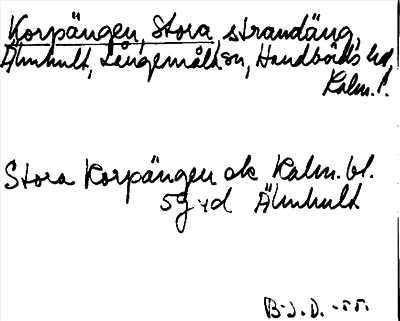 Korpängen, Stora strandäng,
Älmhult, Långemåla sn, Handbörds hd,
Kalm. l.
Stora Korpängen ek Kalm. bl.
5g vd Älmhult
B.J.D. -55.